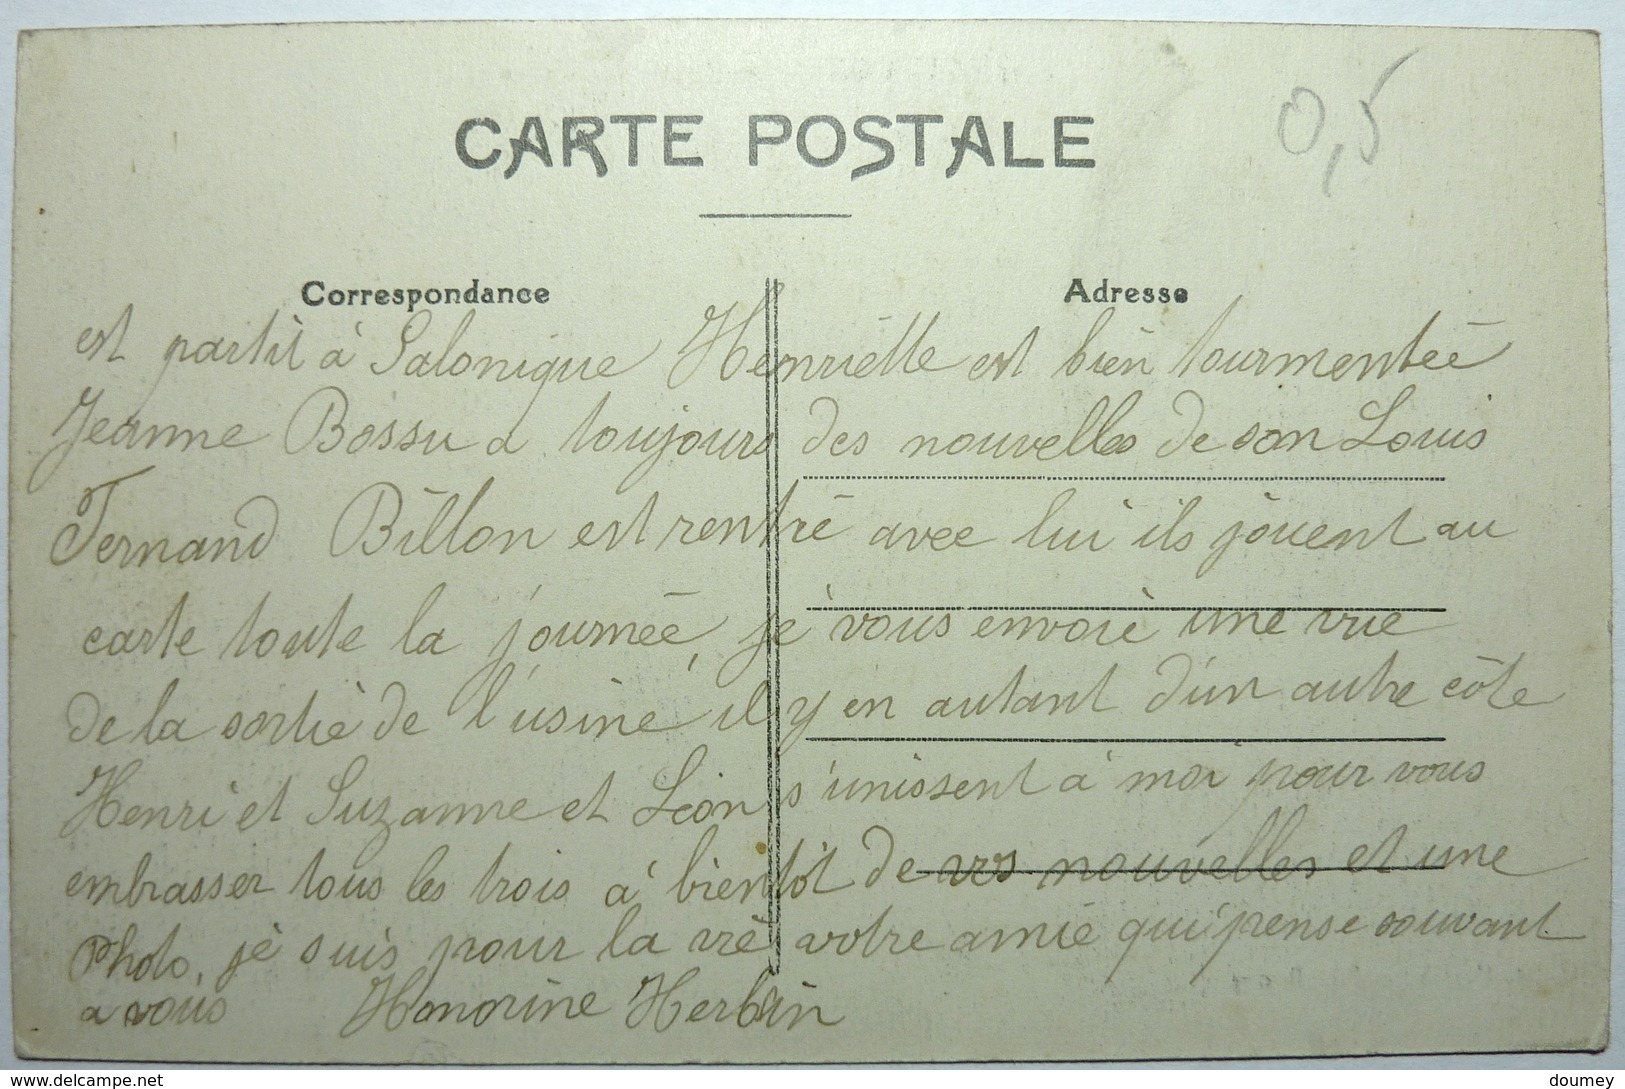 CARTE POSTALE
0,5
Correspondance
Adresse
est partit à Salonique Henriette est bien tourmentée
Jeanne Bossu a toujours des nouvelles de son Louis
Fernand Billon est rentré avec lui ils jouent au
carte toute la journée, je vous envoie une vue
de la sortie de l'usine, il y en autant d'un autre côte
Henri et Suzanne et Léon s'unissent à moi pour vous
embrasser tous les trois à bientôt de vos nouvelles et une
Photo, je suis pour la vie votre amie qui pense souvant
a vous Honorine Herbin
delcampe.net
doumey